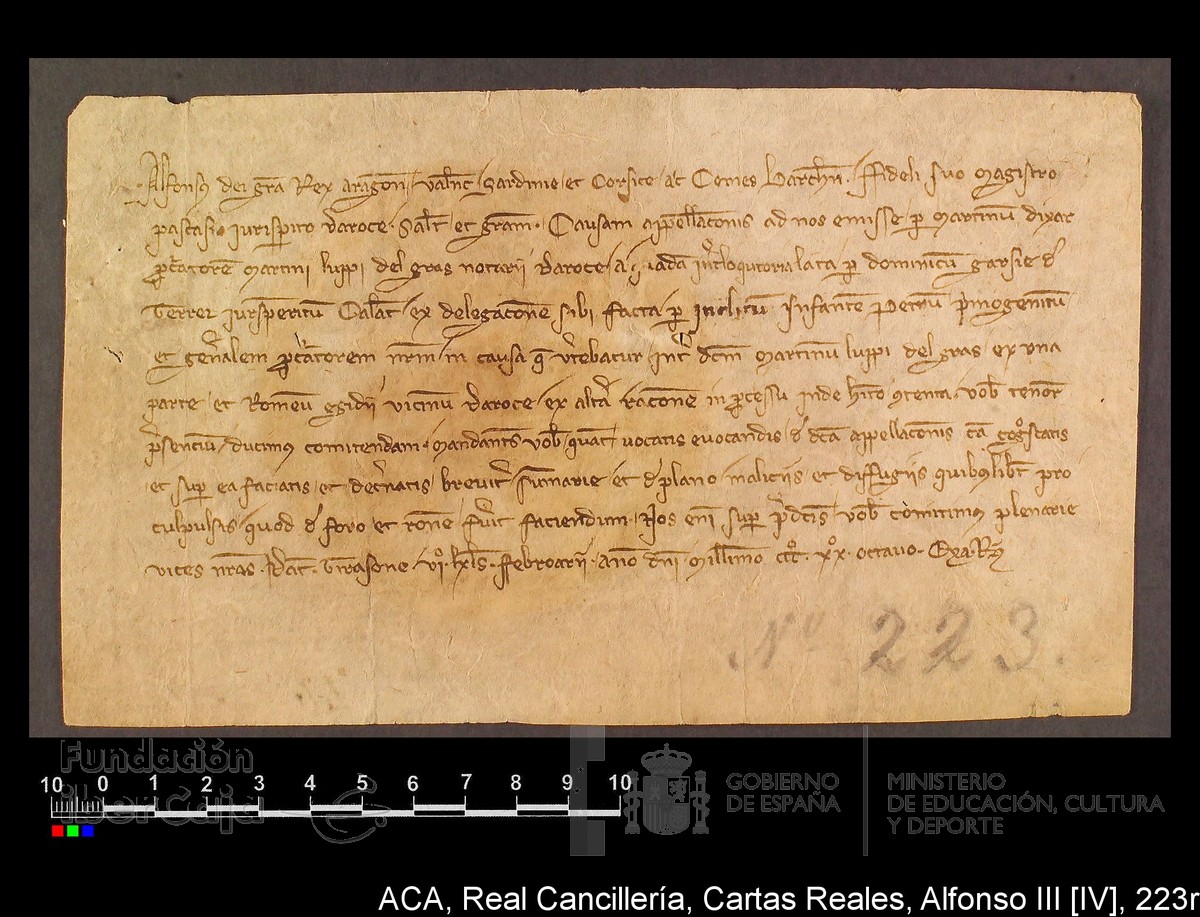 Alfonsus dei gra Rex Aragon Valenc Sardinie et Corsice ac Comes Barchn. Fideli suo magistro
pascasio iurisperito Daroce. Salt et gram. Causam appellacionis ad nos emisse per Martinum
procuratorem Martini luppi del gras notarii Daroce a interloqutoria lata per dominicum garsie de
Terrer iurisperitum Calat ex delegacone sibi facta per inclitum Infantem Petrum primogenitum
et gen'alem procuratorem nrm in causa que vertebatur inter dcm Martinum luppi del gras ex una
parte et Romeum egidii vicinum Daroce ex altera racone in processu inde contenta vob tenor
presencium ducimus comitendam. Mandantes vob quat vocatis evocandis de dca appellaconis ca cognoscatis
et super ea faciatis et decernatis breviter summarie et de plano maliciis et diffugiis quibuslibet pro
culpulsis quod de foro et rone fuerit faciendum. Nos eni super predcis vob comitimus plenarie
vices nras. Dat. Tirasone vi kls ffebroarii ano dni Millimo ccc xx octavo. Exa. R
Nº 223.
Fundación
iberCaja
10 0 1 2 3 4 5 6 7 8 9 10
GOBIERNO
DE ESPAÑA
MINISTERIO
DE EDUCACIÓN, CULTURA
Y DEPORTE
ACA, Real Cancillería, Cartas Reales, Alfonso III [IV], 223r